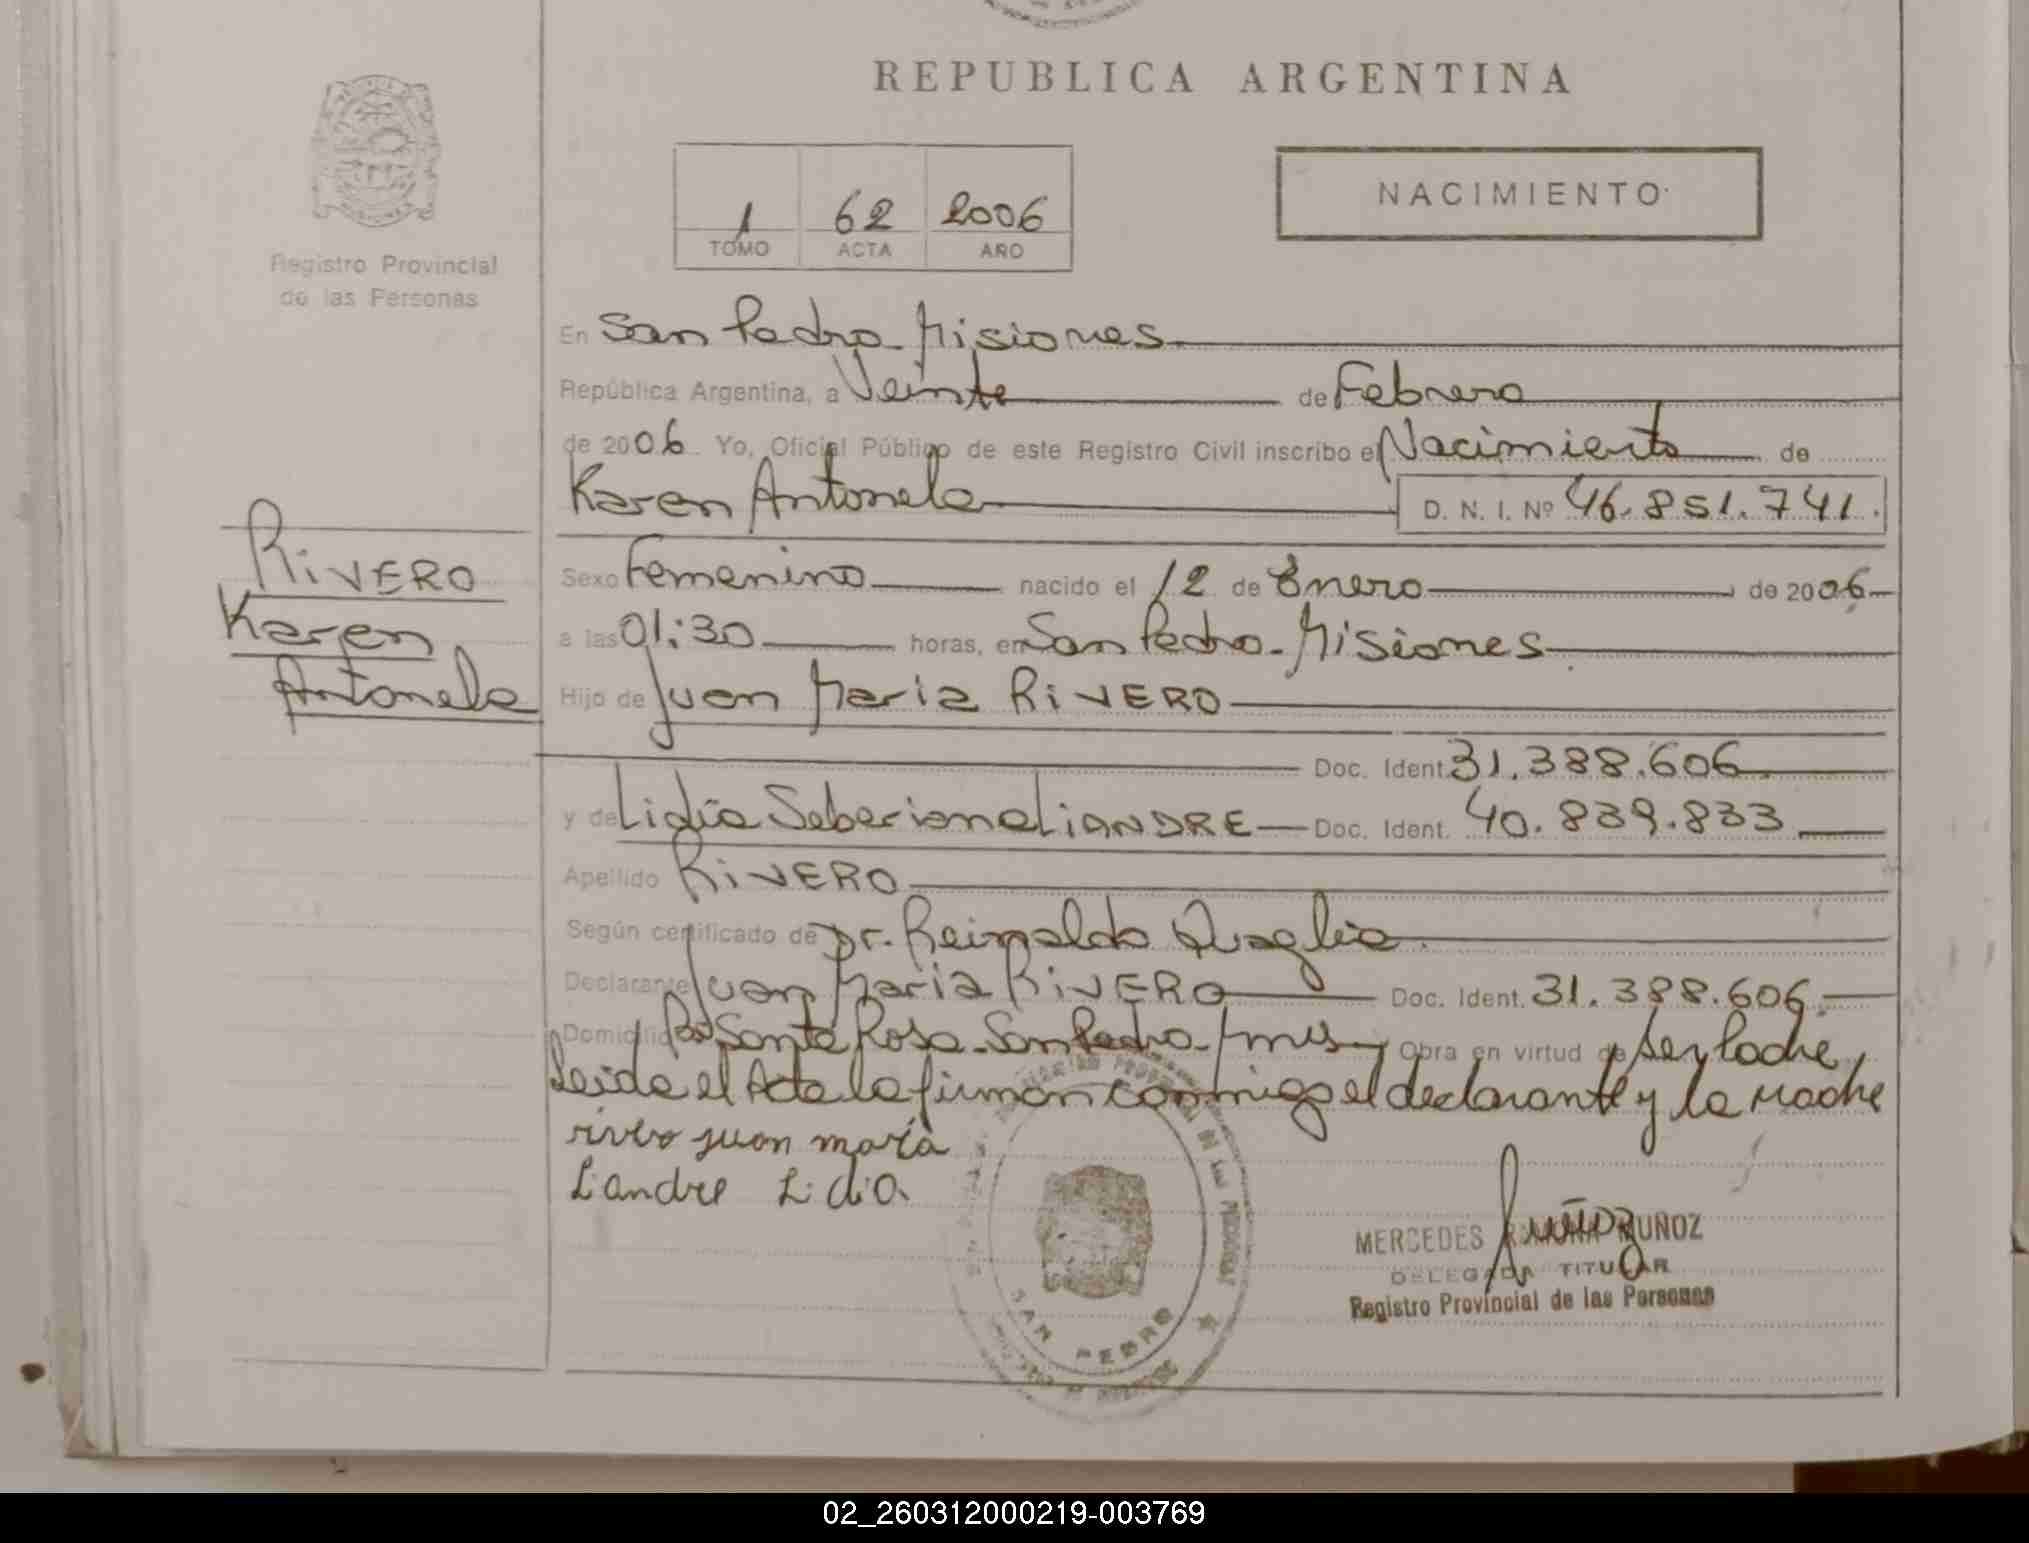 REPUBLICA ARGENTINA
NACIMIENTO
1 62 2006
TOMO ACTA AÑO
Registro Provincial
de las Personas
En San Pedro - Misiones
República Argentina, a Veinte de Febrero
de 2006 Yo, Oficial Público de este Registro Civil inscribo el Nacimiento de
Karen Antonela D. N. I. Nº 46.851.741.
RIVERO
Karen
Antonela
Sexo Femenino nacido el 12 de Enero de 2006
a las 01:30 horas, en San Pedro - Misiones
Hijo de Juan Maria RIVERO
Doc. Ident. 31.388.606
y de Lidia Seberiana LIANDRE Doc. Ident. 40.839.833
Apellido RIVERO
Según certificado de Dr. Reinaldo Quaglia
Declarante Juan Maria RIVERO Doc. Ident. 31.388.606
Domicilio Bº Santa Rosa - San Pedro - Mnes Obra en virtud de Ser Padre
Leida el Acta la firman conmigo el declarante y la madre
rivero juan maría
Liandre Lidia
SAN PEDRO
MERCEDES RAMONA MUÑOZ
DELEGADA TITULAR
Registro Provincial de las Personas
02_260312000219-003769